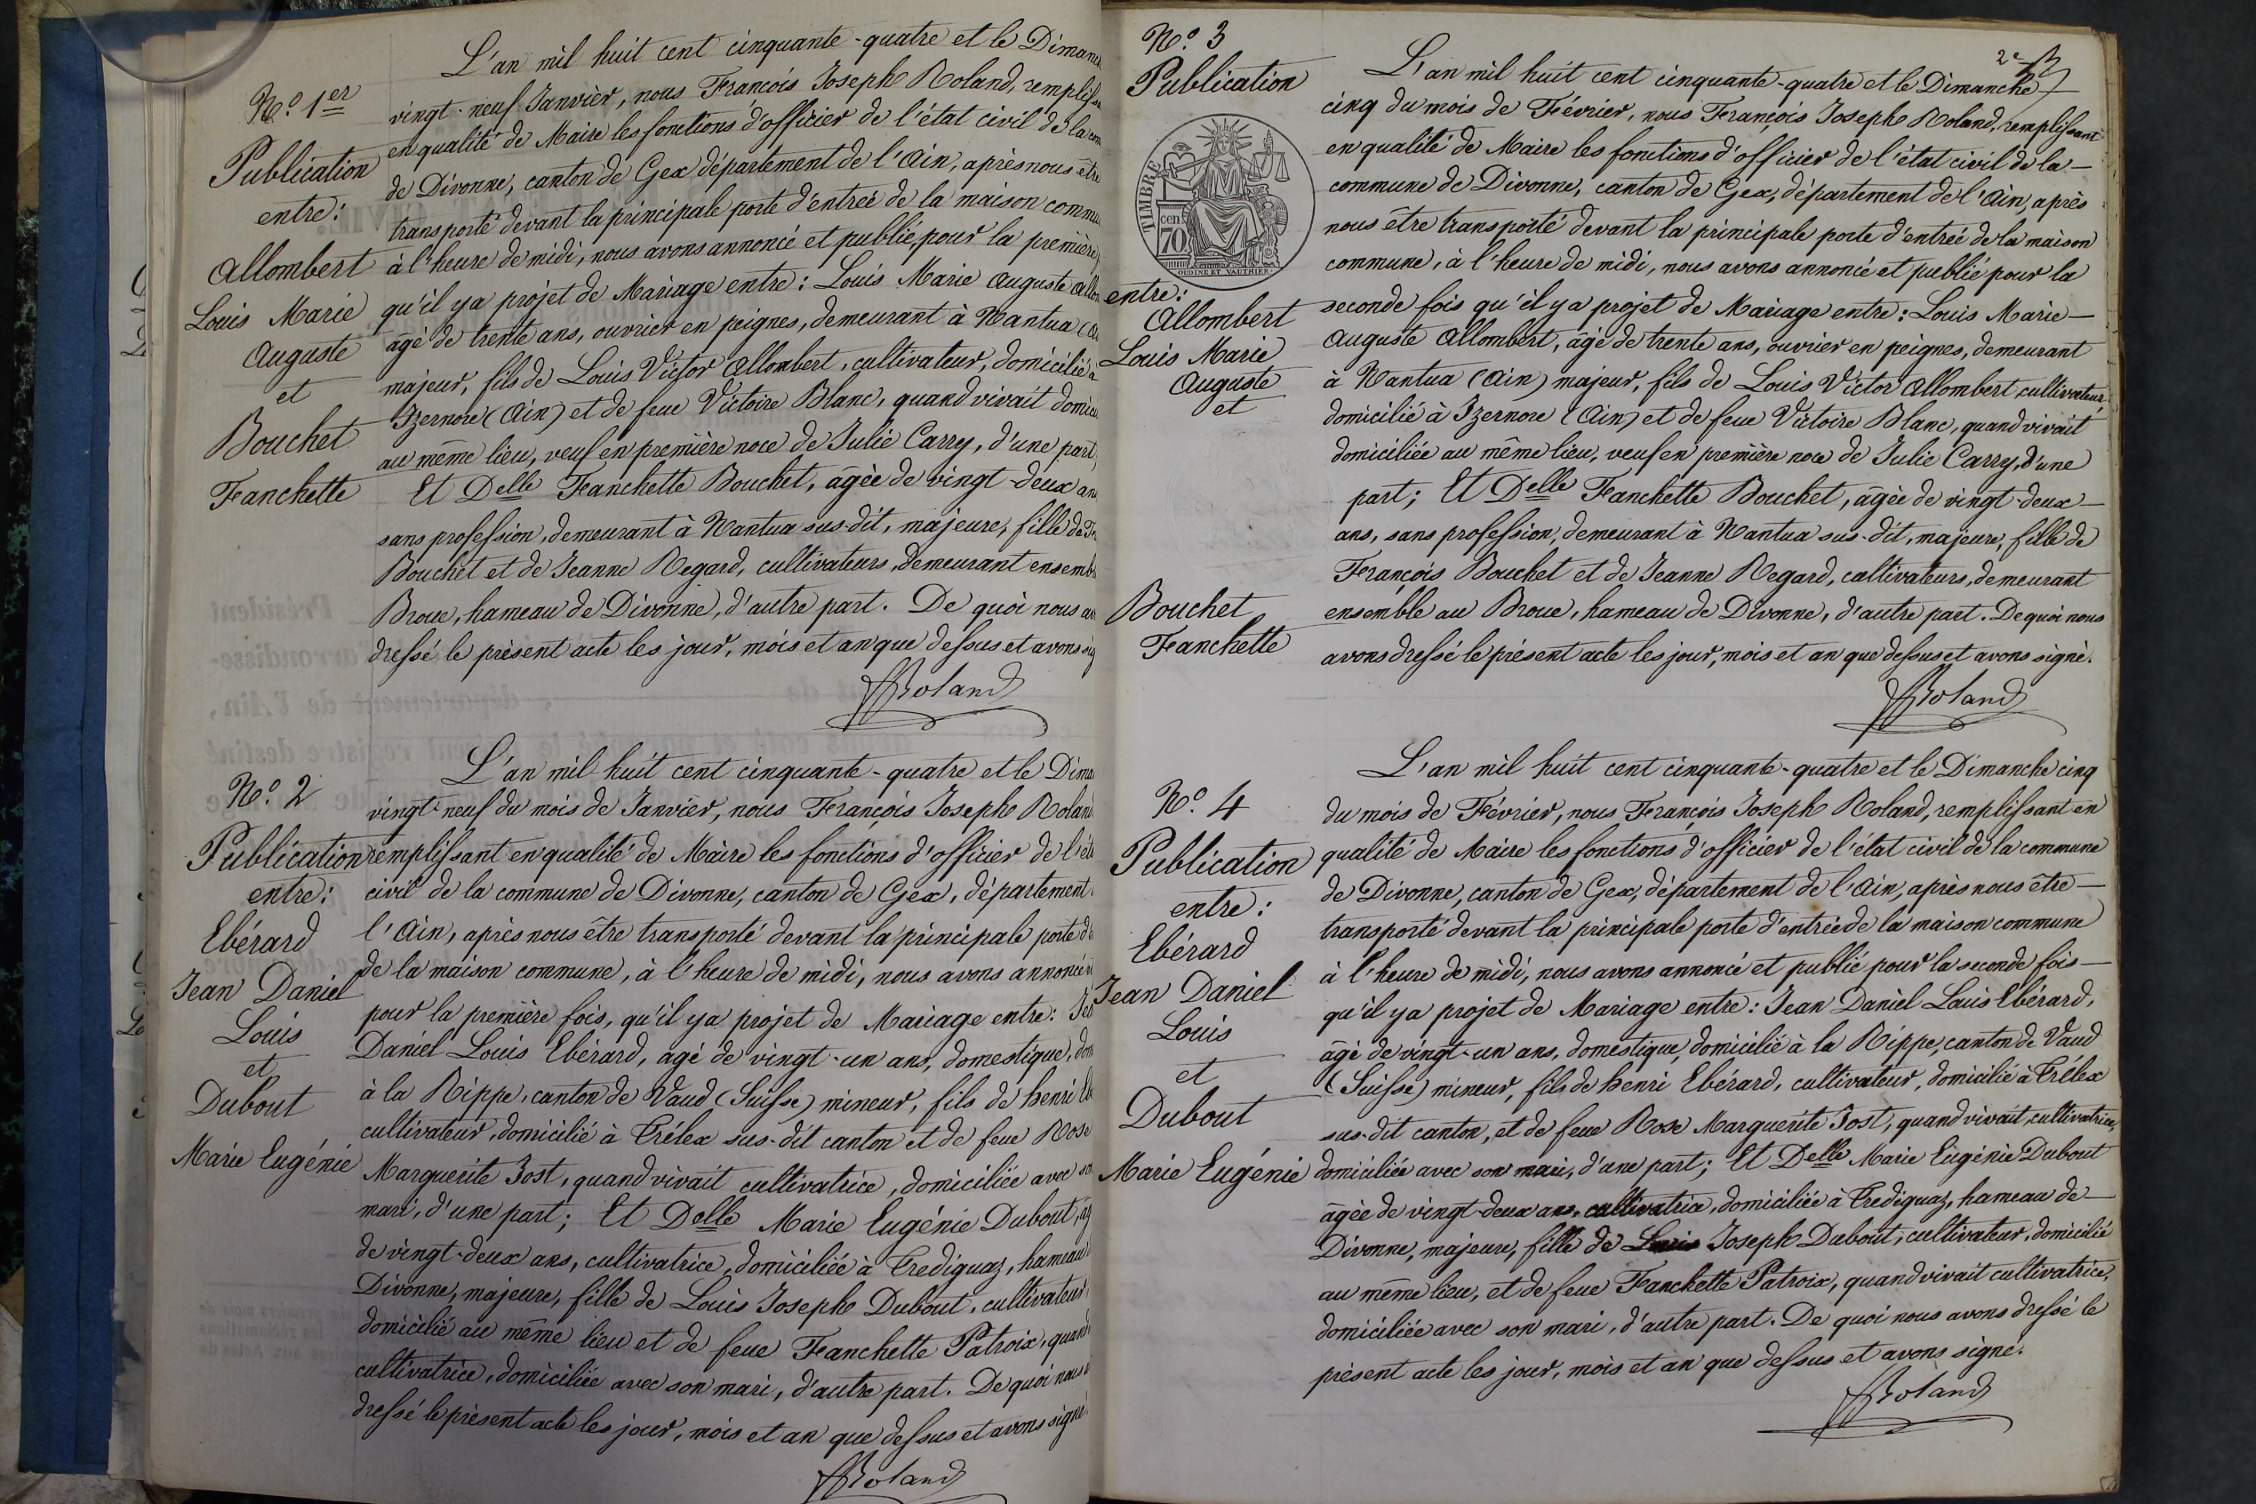 N.º 1er
Publication
entre:
Allombert
Louis Marie
Auguste
et
Bouchet
Fanchette
L'an mil huit cent cinquante-quatre et le Dimanc
vingt-neuf Janvier, nous François Joseph Roland, remplissa
en qualité de Maire les fonctions d'officier de l'état civil de la com
de Divonne, canton de Gex département de l'Ain, après nous être
transporté devant la principale porte d'entrée de la maison commu
à l'heure de midi, nous avons annoncé et publié, pour la première
qu'il y a projet de Mariage entre: Louis Marie Auguste Allom
âgé de trente ans, ouvrier en peignes, demeurant à Nantua (Ai
majeur, fils de Louis Victor Allombert, cultivateur, domicilié à
Izernore (Ain) et de feue Victoire Blanc, quand vivait domici
au même lieu, veuf en première noce de Julie Carry, d'une part;
Et Delle Fanchette Bouchet, âgée de vingt-deux an
sans profession, demeurant à Nantua sus-dit, majeure, fille de Fr
Bouchet et de Jeanne Regard, cultivateurs, demeurant ensemb
Broue, hameau de Divonne, d'autre part. De quoi nous av
dressé le présent acte les jour, mois et an que dessus et avons sig
FJRoland
N.º 2
Publication
entre:
Ebérard
Jean Daniel
Louis
et
Dubout
Marie Eugénie
L'an mil huit cent cinquante-quatre et le Dima
vingt-neuf du mois de Janvier, nous François Joseph Roland
remplissant en qualité de Maire les fonctions d'officier de l'éta
civil de la commune de Divonne, canton de Gex, département
l'Ain, après nous être transporté devant la principale porte d'e
de la maison commune, à l'heure de midi, nous avons annoncé et
pour la première fois, qu'il y a projet de Mariage entre: Jea
Daniel Louis Ebérard, âgé de vingt-un ans, domestique, dom
à la Rippe, canton de Vaud (Suisse) mineur, fils de henri Eb
cultivateur, domicilié à Trélex sus-dit canton et de feue Rose
Marguerite Jost, quand vivait cultivatrice, domiciliée avec son
mari, d'une part; Et Delle Marie Eugénie Dubout, âg
de vingt-deux ans, cultivatrice, domiciliée à Crediguaz, hameau
Divonne, majeure, fille de Louis Joseph Dubout, cultivateur,
domicilié au même lieu et de feue Fanchette Patroix, quand
cultivatrice, domiciliée avec son mari, d'autre part. De quoi nous
dressé le présent acte les jour, mois et an que dessus et avons signé
FJRoland
N.º 3
Publication
TIMBRE
70 cen
OUDINE ET VAUTHIER
entre:
Allombert
Louis Marie
Auguste
et
Bouchet
Fanchette
2e
L'an mil huit cent cinquante-quatre et le Dimanche
cinq du mois de Février, nous François Joseph Roland, remplissant
en qualité de Maire les fonctions d'officier de l'état civil de la
commune de Divonne, canton de Gex, département de l'Ain, après
nous être transporté devant la principale porte d'entrée de la maison
commune, à l'heure de midi, nous avons annoncé et publié pour la
seconde fois qu'il y a projet de Mariage entre: Louis Marie
Auguste Allombert, âgé de trente ans, ouvrier en peignes, demeurant
à Nantua (Ain) majeur, fils de Louis Victor Allombert, cultivateur
domicilié à Izernore (Ain) et de feue Victoire Blanc, quand vivait
domiciliée au même lieu, veuf en première noce de Julie Carry, d'une
part; Et Delle Fanchette Bouchet, âgée de vingt-deux
ans, sans profession, demeurant à Nantua sus-dit, majeure, fille de
François Bouchet et de Jeanne Regard, cultivateurs, demeurant
ensemble au Broue, hameau de Divonne, d'autre part. De quoi nous
avons dressé le présent acte les jour, mois et an que dessus et avons signé.
FJRoland
N.º 4
Publication
entre:
Ebérard
Jean Daniel
Louis
et
Dubout
Marie Eugénie
L'an mil huit cent cinquante-quatre et le Dimanche cinq
du mois de Février, nous François Joseph Roland, remplissant en
qualité de Maire les fonctions d'officier de l'état civil de la commune
de Divonne, canton de Gex, département de l'Ain, après nous être
transporté devant la principale porte d'entrée de la maison commune
à l'heure de midi, nous avons annoncé et publié pour la seconde fois
qu'il y a projet de Mariage entre: Jean Daniel Louis Ebérard,
âgé de vingt-un ans, domestique, domicilié à la Rippe, canton de Vaud
(Suisse) mineur, fils de henri Ebérard, cultivateur, domicilié à Trélex
sus-dit canton, et de feue Rose Marguerite Jost, quand vivait cultivatrice,
domiciliée avec son mari, d'une part; Et Delle Marie Eugénie Dubout
âgée de vingt-deux ans, cultivatrice, domiciliée à Crediguaz, hameau de
Divonne, majeure, fille de Louis Joseph Dubout, cultivateur, domicilié
au même lieu, et de feue Fanchette Patroix, quand vivait cultivatrice,
domiciliée avec son mari, d'autre part. De quoi nous avons dressé le
présent acte les jour, mois et an que dessus et avons signé.
FJRoland